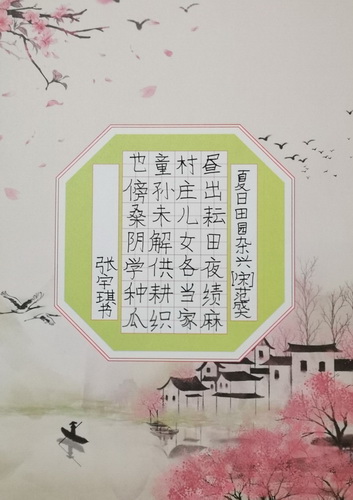 夏日田园杂兴[宋]范成大
昼出耘田夜绩麻
村庄儿女各当家
童孙未解供耕织
也傍桑阴学种瓜
张宇琪书